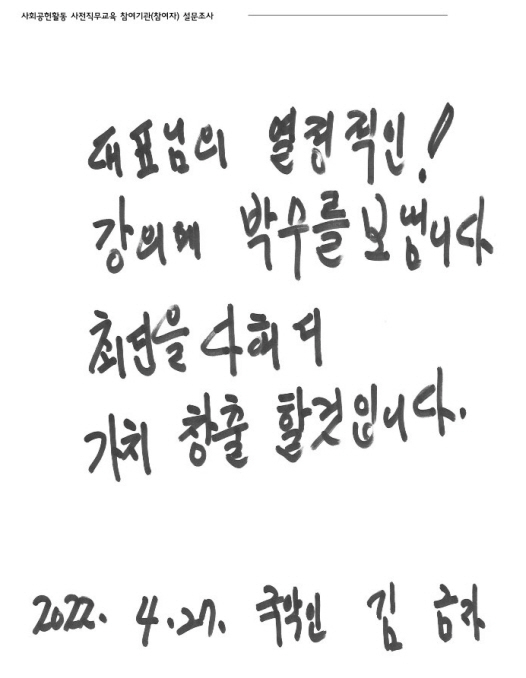 사회공헌활동 사전직무교육 참여기관(참여자) 설문조사
대표님의 열정적인!
강의에 박수를 보냅니다
최선을 다하여
가치 창출 할것입니다.
2022. 4. 27. 국악인 김 금자